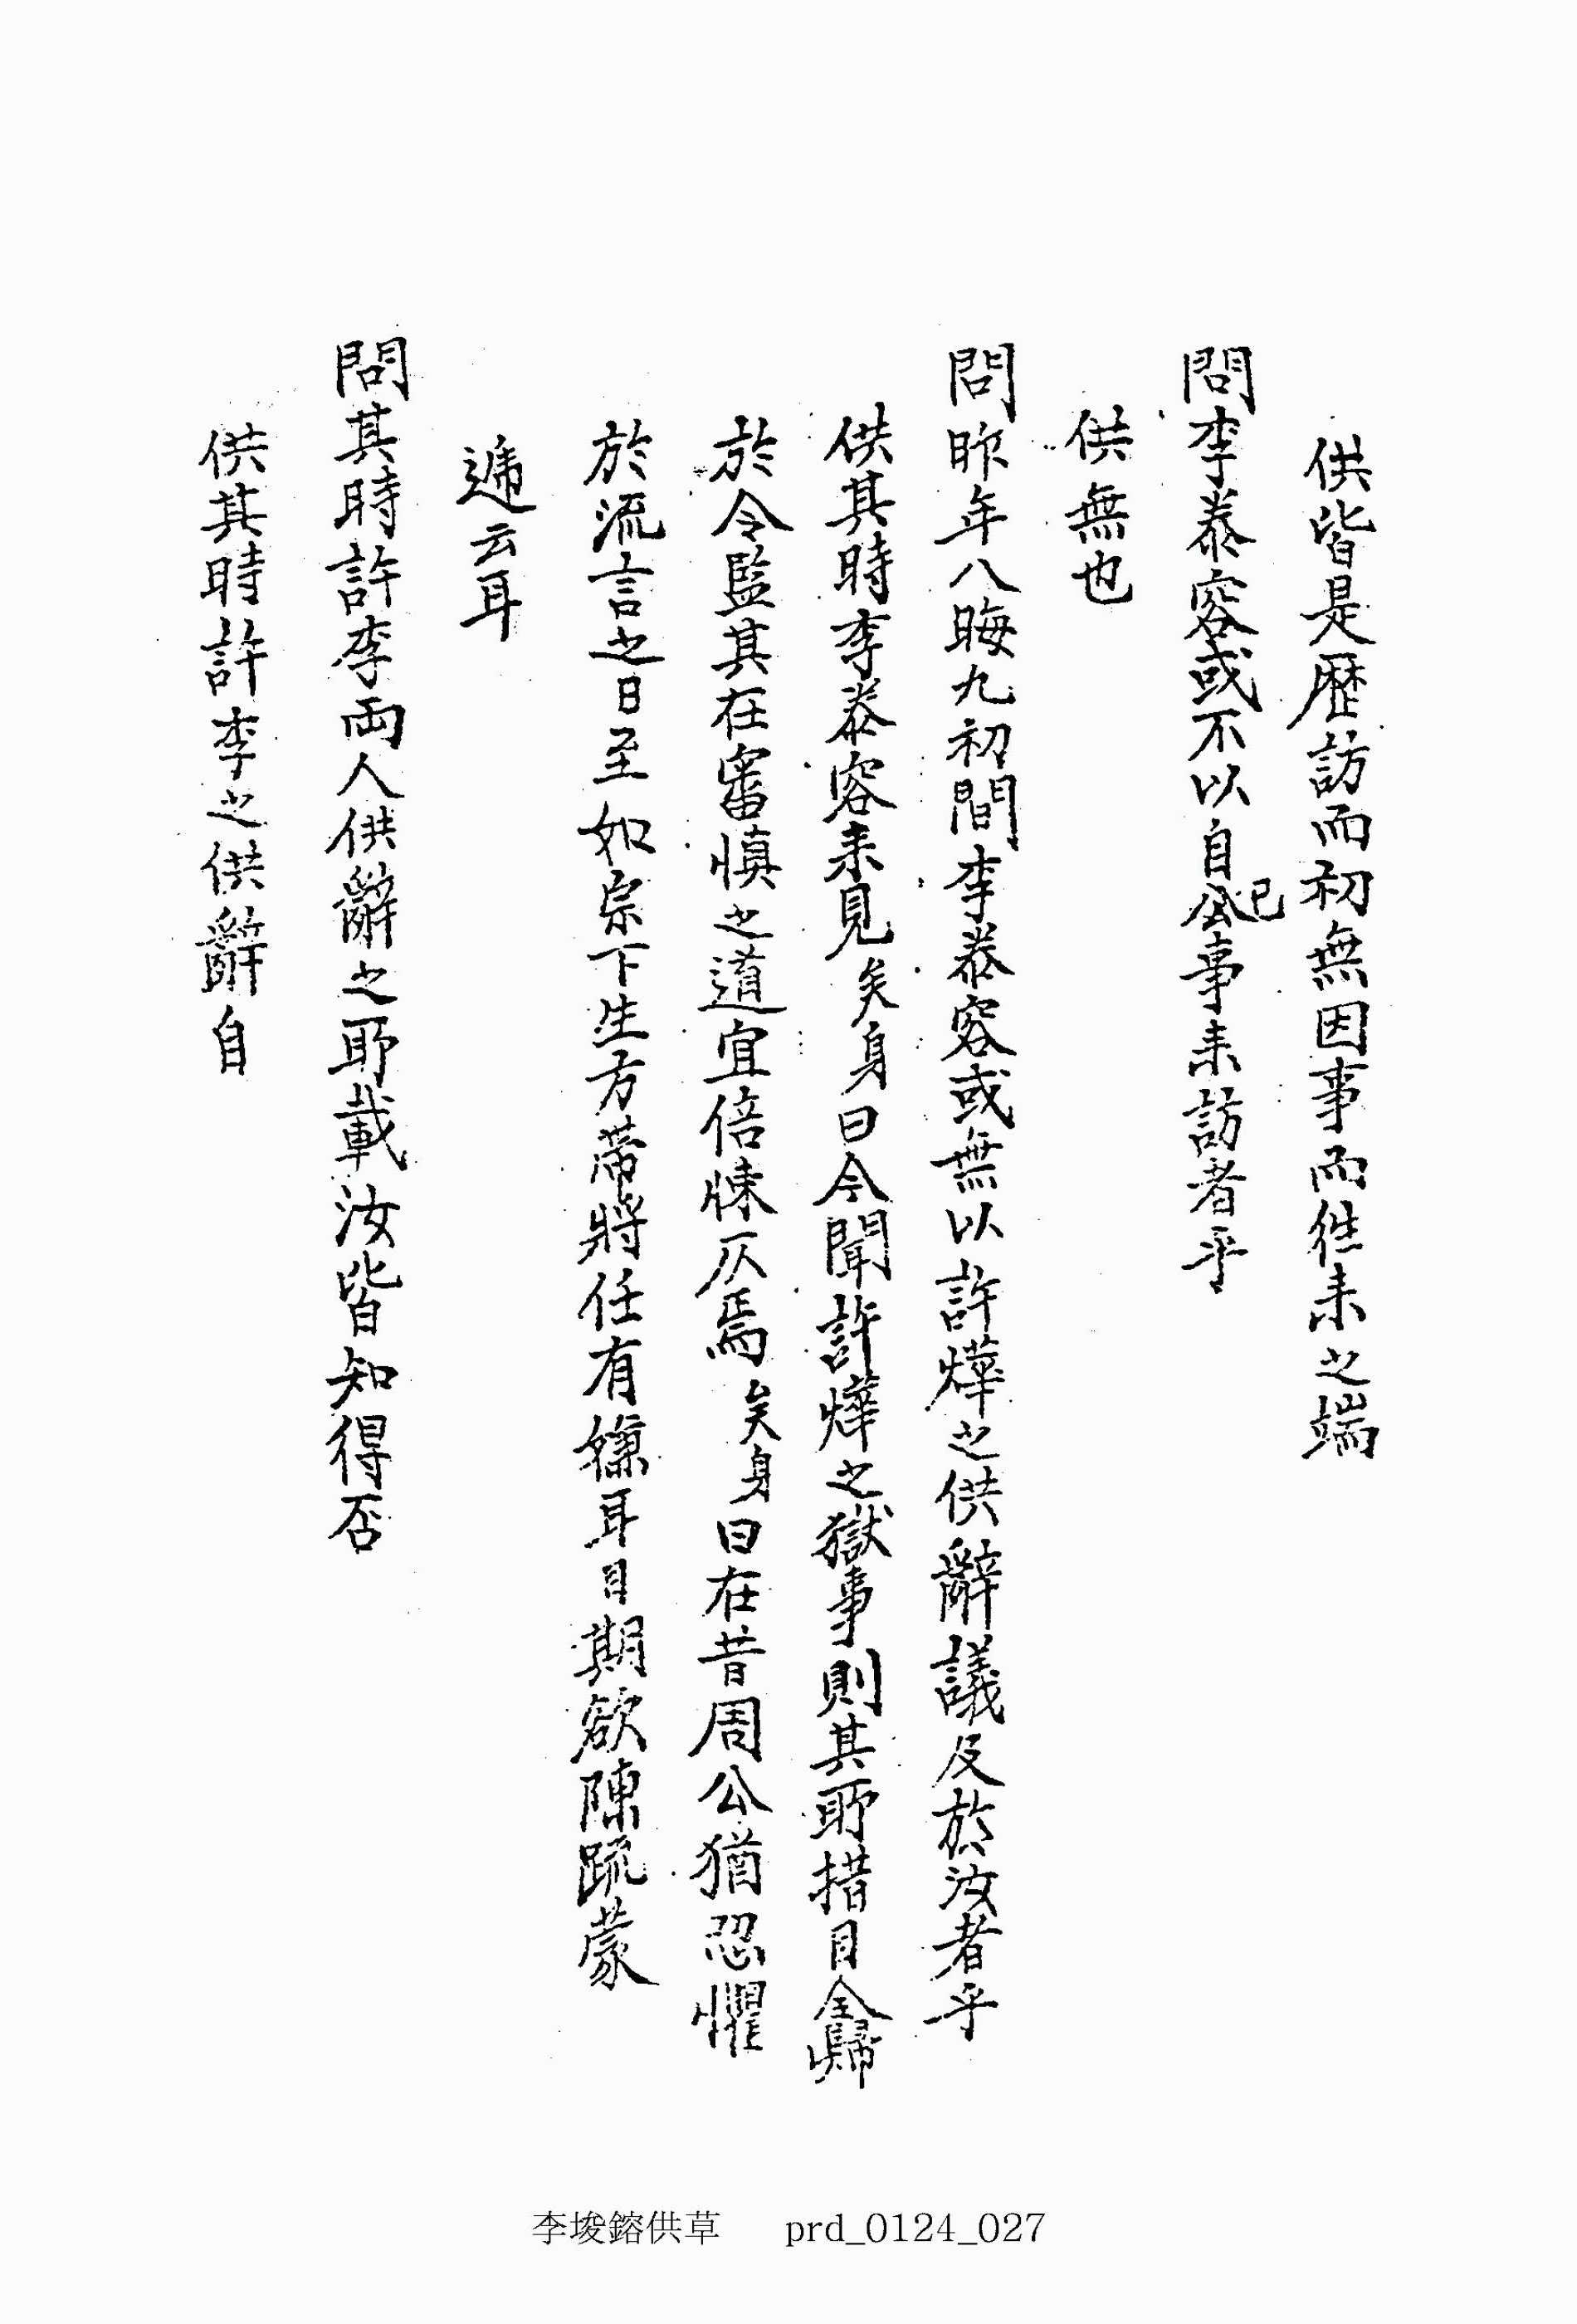 供皆是歷訪而初無因事而徃来之端
問李泰容或不以自己公事来訪者乎
供無也
問昨年八晦九初間李泰容或無以許燁之供辭議及於汝者乎
供其時李泰容来見矣身曰今聞許燁之獄事則其所措目全歸
於令監其在審愼之道宜倍悚仄焉矣身曰在昔周公猶恐懼
於流言之日至如宗下生方帶將任有嫌耳目期欲陳疏蒙
遞云耳
問其時許李兩人供辭之所載汝皆知得否
供其時許李之供辭自
李埈鎔供草 prd_0124_027